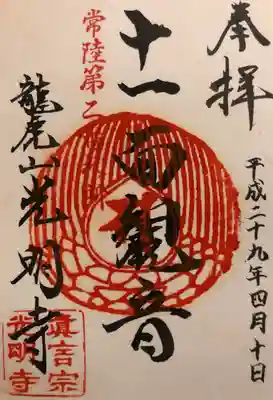 奉拝
平成二十九年四月十日
十一面觀音
常陸第二
龍虎山光明寺
真言宗
光明寺